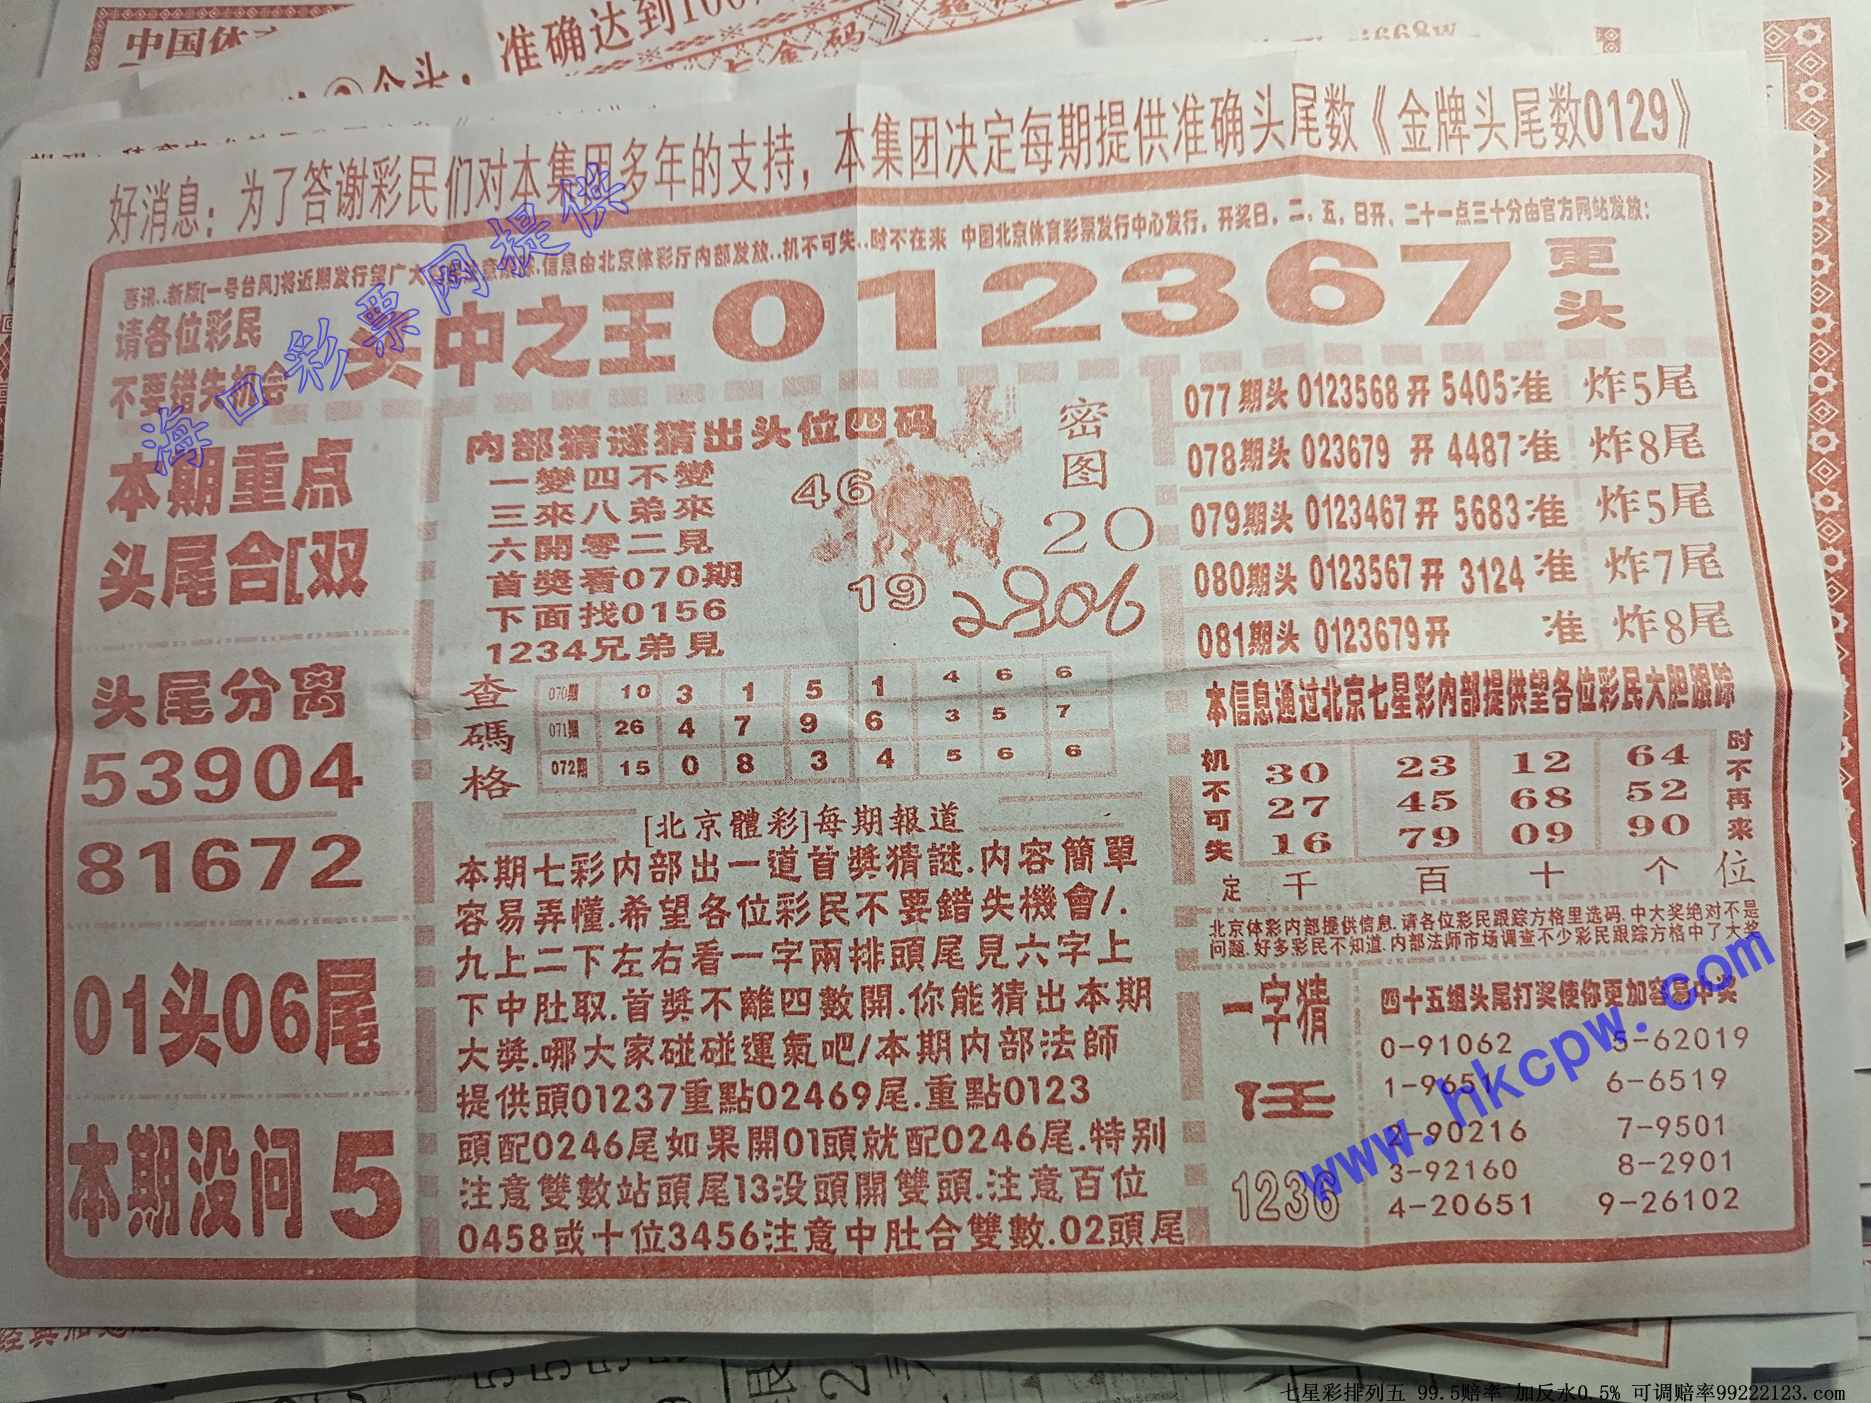 中国体
个头，准确达到100
七金码》
668w
好消息：为了答谢彩民们对本集团多年的支持，本集团决定每期提供准确头尾数《金牌头尾数0129》
喜讯..新版[一号台风]将近期发行望广大
信息由北京体彩厅内部发放..机不可失..时不在来 中国北京体育彩票发行中心发行，开奖日，二、五、日开、二十一点三十分由官方网站发放：
请各位彩民
不要错失机会
头中之王 012367 更头
本期重点
头尾合[双
头尾分离
53904
81672
01头06尾
本期没问 5
内部猜谜猜出头位四码
一變四不變
三來八弟來
六開零二見
首獎看070期
下面找0156
1234兄弟見
密图
46
20
19
2806
查碼格
070期 10 3 1 5 1 4 6 6
071期 26 4 7 9 6 3 5 7
072期 15 0 8 3 4 5 6 6
[北京體彩]每期報道
本期七彩内部出一道首獎猜謎.内容簡單
容易弄懂.希望各位彩民不要錯失機會/.
九上二下左右看一字兩排頭尾見六字上
下中肚取.首獎不離四數開.你能猜出本期
大獎.哪大家碰碰運氣吧/本期内部法師
提供頭01237重點02469尾.重點0123
頭配0246尾如果開01頭就配0246尾.特别
注意雙數站頭尾13没頭開雙頭.注意百位
0458或十位3456注意中肚合雙數.02頭尾
077期头 0123568 开 5405 准 炸5尾
078期头 023679 开 4487 准 炸8尾
079期头 0123467 开 5683 准 炸5尾
080期头 0123567 开 3124 准 炸7尾
081期头 0123679 开 准 炸8尾
本信息通过北京七星彩内部提供望各位彩民大胆跟踪
机不可失
30 23 12 64
27 45 68 52
16 79 09 90
时不再来
定 千 百 十 个 位
北京体彩内部提供信息.请各位彩民跟踪方格里选码.中大奖绝对不是
问题.好多彩民不知道.内部法师市场调查不少彩民跟踪方格中了大奖
一字猜
任
1236
四十五组头尾打奖使你更加容易中奖
0-91062 5-62019
1-9657 6-6519
2-90216 7-9501
3-92160 8-2901
4-20651 9-26102
海口彩票网提供
www.hkcpw.com
七星彩排列五 99.5赔率 加反水0.5% 可调赔率99222123.com